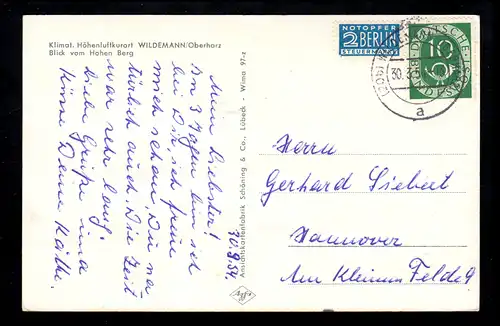 Klimat. Höhenluftkurort WILDEMANN/Oberharz
Blick vom Hohen Berg
Mein Liebster!
In 3 Tagen bin ich
bei Dir, ich freue
mich schon, Du na
türlich auch. Die Zeit
war sehr lang.
Liebe Grüße und
Küsse Deine Käthe.
30.8.54
Ansichtskartenfabrik Schöning & Co., Lübeck - Wima 97-z
Agfa
NOTOPFER
2 BERLIN
STEUERMARKE
30.8
a
DEUTSCHE
10
Herrn
Gerhard Siebert
Hannover
Am Kleinen Felde 9